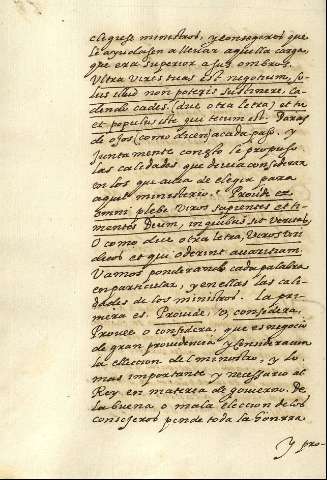 eligiese ministros, y consegeros que
le ayudasen a lleuar aquella carga
que era superior a sus ombros.
Ultra vires tuas est negotium, so-
lus illud non poteris sustinere. Ca-
dendo cades (dize otra letra) et tu
et populus iste qui tecum est. Daras
de ojos (como dicen) a cada paso. y
Juntamente con esto le propuso
las calidades que deuia considerar
en los que auia de elegir para
aquel ministerio. Prouide ex
omni plebe viros sapientes et ti-
mentes Deum, in quibus sit veritas,
O como dice otra letra, Veros viri
dicos et qui oderint auaritiam.
Vamos ponderando cada palabra
en particular, y en ellas las cali-
dades de los ministros. La pri-
mera es. Prouide, o, considera,
Prouee o considera, que es negocio
de gran prouidencia y consideracion
la elleccion del ministro, y lo
mas importante y necessario al
Rey en materia de gouierno. De
la buena o mala eleccion de los
consejeros pende toda la honrra
y pro-